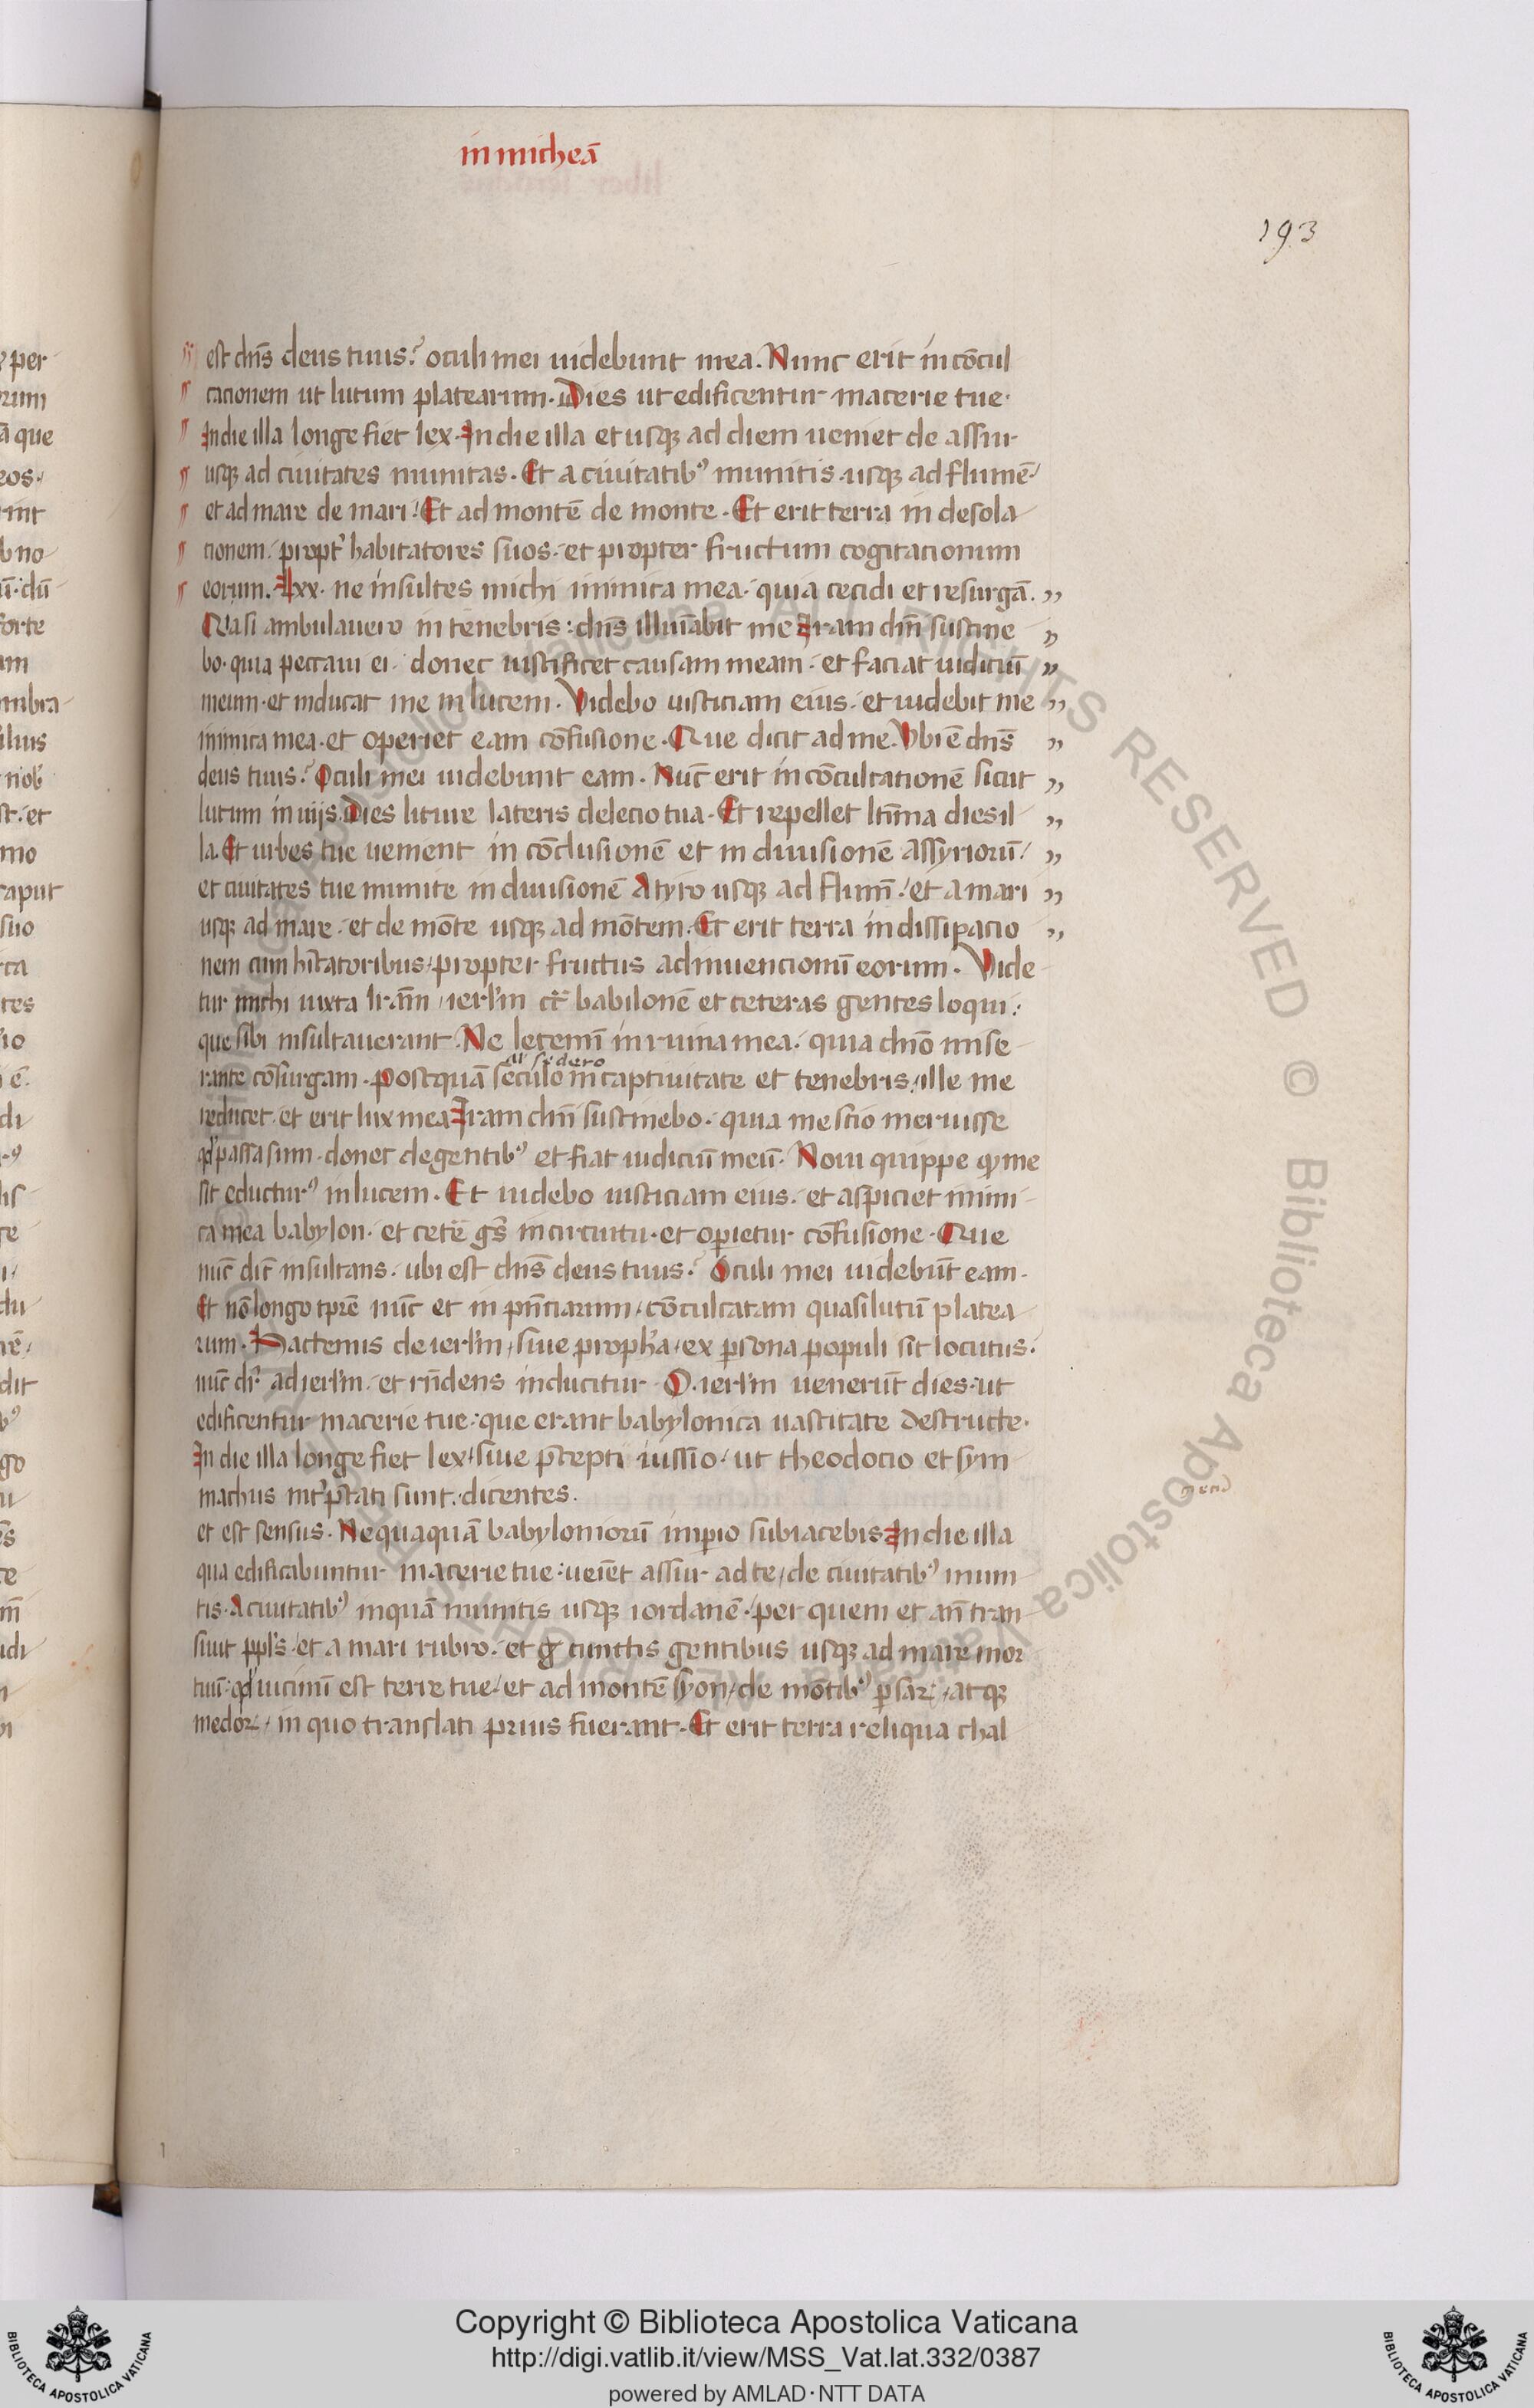 in micheā
193
est dn̄s deus tuus? oculi mei uidebunt mea. Nunc erit in cōcul
cationem ut lutum platearum. Dies ut edificentur macerie tue.
In die illa longe fiet lex. In die illa et usq; ad diem ueniet de assur
usq; ad ciuitates munitas. Et a ciuitatib⁹ munitis usq; ad flumē
et ad mare de mari. Et ad montē de monte. Et erit terra in desola
tionem. propt̉ habitatores suos. et propter fructum cogitationum
eorum. Lxx. ne insultes michi inimica mea. quia cecidi et resurgā.
Quasi ambulauero in tenebris: dn̄s illuīabit me Iram dn̄i sustine
bo. quia peccaui ei. donec iustificet causam meam. et faciat iudiciū
meum. et inducat me in lucem. Videbo iusticiam eius. et uidebit me
inimica mea. et operiet eam cōfusione. Que dicit ad me. Vbi ē dn̄s
deus tuus? Oculi mei uidebunt eam. Nūc erit in cōculcationē sicut
lutum in uijs. Dies liture lateris delecio tua. Et repellet ltīma dies il
la. Et urbes tue uenient in cōclusionē et in diuisionē assyriorū.
et ciuitates tue munite in diuisionē A tyro usq; ad flum̄. et a mari
usq; ad mare. et de mōte usq; ad mōtem. Et erit terra in dissipacio
nem cum hītatoribus. propter fructus adinuencionū eorum. Vide
tur michi iuxta lr̄am ierl'm cr̄ babilonē et ceteras gentes loqui.
que sibi insultauerant. Ne letemī in ruina mea. quia dn̄o mise
al' sedero
rante cōsurgam. postquā seculo in captiuitate et tenebris. ille me
reducet. et erit lux mea Iram dn̄i sustinebo. quia me scio meruisse
qd' passa sum. donec de gentib⁹ et fiat iudiciū meū. Noui quippe q me
sit eductur⁹ in lucem. Et uidebo iusticiam eius. et aspiciet inimi
ca mea babylon. et ceteē gēs in circuitu. et opietur cōfusione. Que
nūc dic̄ insultans. ubi est dn̄s deus tuus? Oculi mei uidebūt eam.
Et nō longo tp̄re nūc et in pn̄ciarum, cōculcatam quasi lutū platea
rum. Hactenus de ierl'm, siue proph'a, ex psona populi sit locutus.
nūc dr̉ ad ierl'm. et rn̄dens inducitur O. ierl'm uenerūt dies. ut
edificentur macerie tue. que erant babylonica uastitate destructe.
In die illa longe fiet lex, siue p̄cepti iussio, ut theodocio et sym
machus int̉p̄tati sunt. dicentes.
mend
et est sensus. Nequaquā babyloniorū impio subiacebis In die illa
qua edificabuntur macerie tue: ueiēt assur ad te, de ciuitatib⁹ muni
tis. A ciuitatib⁹ inquā munitis usq; iordanē, per quem et an̄ tran
siuit ppl's. et a mari rubro. et g cunctis gentibus usq; ad mare mor
tuū: qd' uicinū est terre tue, et ad montē syon, de mōtib⁹ psaꝝ, atq;
medoꝝ, in quo translati prius fuerant. Et erit terra reliqua chal
Copyright © Biblioteca Apostolica Vaticana
http://digi.vatlib.it/view/MSS_Vat.lat.332/0387
powered by AMLAD·NTT DATA